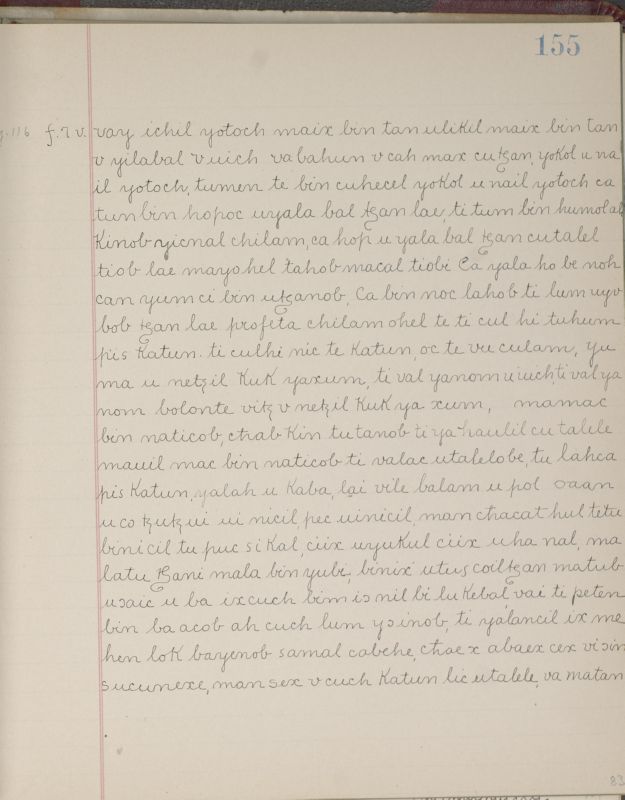 155
f. 7 v. vay ichil yotoch maix bin tan ulikil maix bin tan
v yilabal v uich va bahun v cah max cu ꜩan yokol u na
il yotoch, tumen te bin cuhecel yokol u nail yotoch ca
tun bin hopoc uyala bal ꜩan lae, ti tum bin humol ah
Kinob yicnal chilam, ca hop u yala bal ꜩan cu talel
tiob lae mayohel tahob macal tiobi Ca yala ho be noh
can yum ci bin u ꜩanob, Ca bin noc lahob ti lum uyv
bob ꜩan lae profeta chilam ohel te ti cul hi tu hum
pis Katun. ti culhi nic te Katun, oc te vu culam, yu
ma u netzil Kuk yaxum, ti val yanom u uich, ti val ya
nom bolonte vitz v netzil Kuk ya xum, mamac
bin naticob, chab Kin tu tanob ti ya haulil cu talele
mauil mac bin naticob ti valac utalelobe, tu lahca
pis Katun, yalah u Kaba, lai vile balam u pol ɔaan
u co tzutz ui ui nicil pec uinicil, man chacat hul te tu
binicil tu puc si Kal, ciix uyukul ciix u ha nal, ma
latu ꜩani mala bin yubi, binix u tus coil ꜩan matub
u ɔaic u ba ix cuch bim iɔ nil bi lu Kebal vai ti peten
bin ba acob ah cuch lum yɔinob, ti yalancil ix me
hen lok bayenob samal cabehe, chaex abaex cex viɔin
sucunexe, man sex v cuch Katun lic utalele, va matan